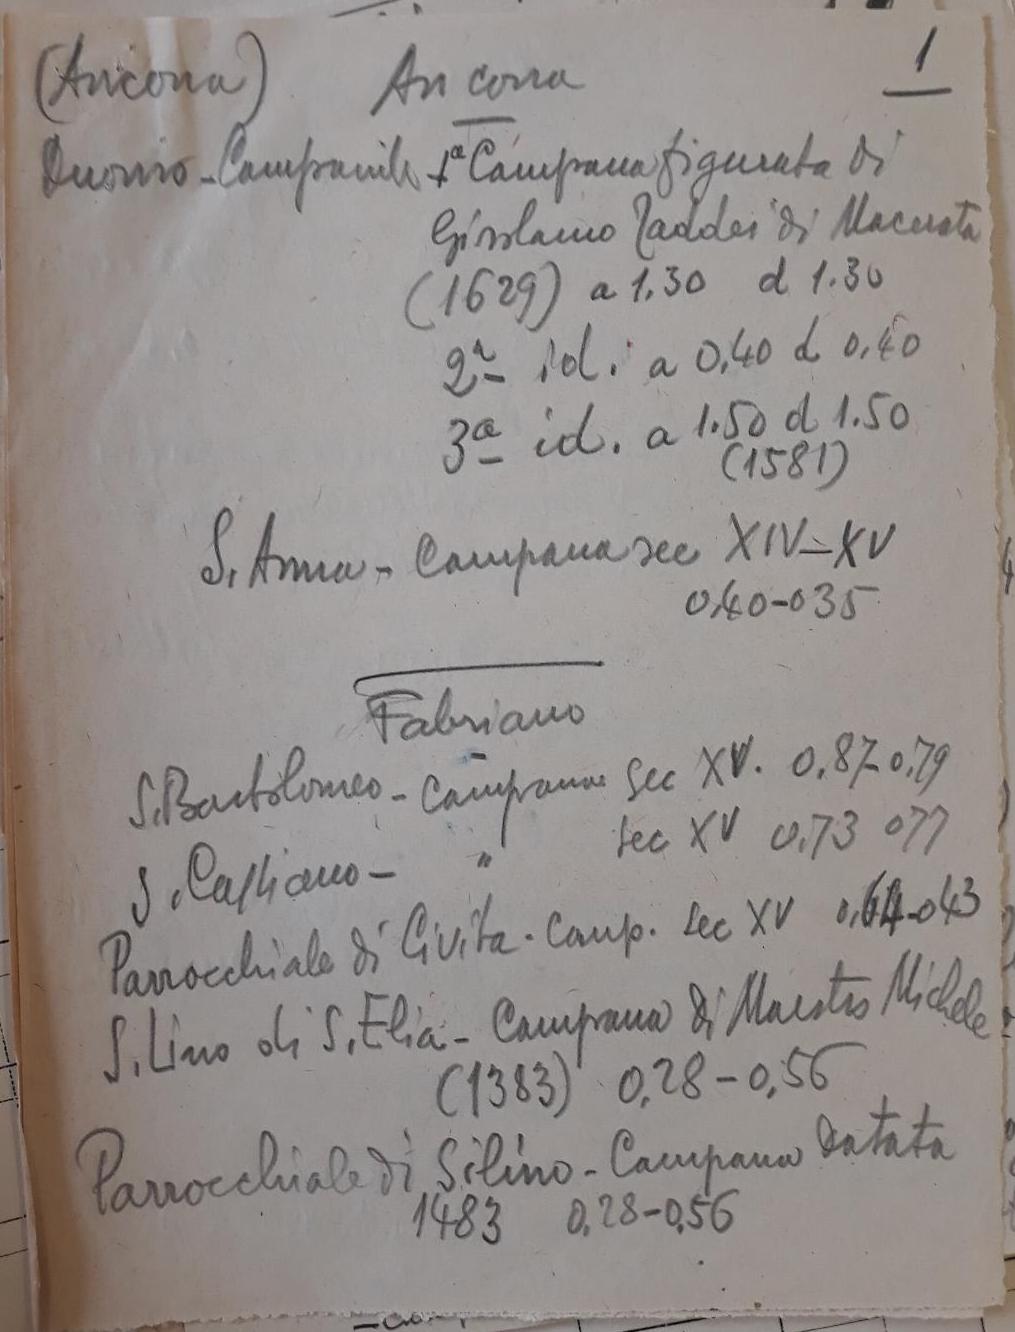 (Ancona) Ancona 1
Duomo - Campanile 1a Campana figurata di
Girolamo Taddei di Macerata
(1629) a 1.30 d 1.30
2a id. a 0,40 d 0,40
3a id. a 1.50 d 1.50
(1581)
S. Anna - Campana sec XIV-XV
0,40-035
Fabriano
S. Bartolomeo - campana sec XV. 0,87-0,79
S. Cassiano - " sec XV 0,73 077
Parrocchiale di Civita - Camp. sec XV 043
S. Lino di S. Elia - Campana di Maestro Michele
(1383) 0,28-0,56
Parrocchiale di S. Lino - Campana Datata
1483 0,28-0,56